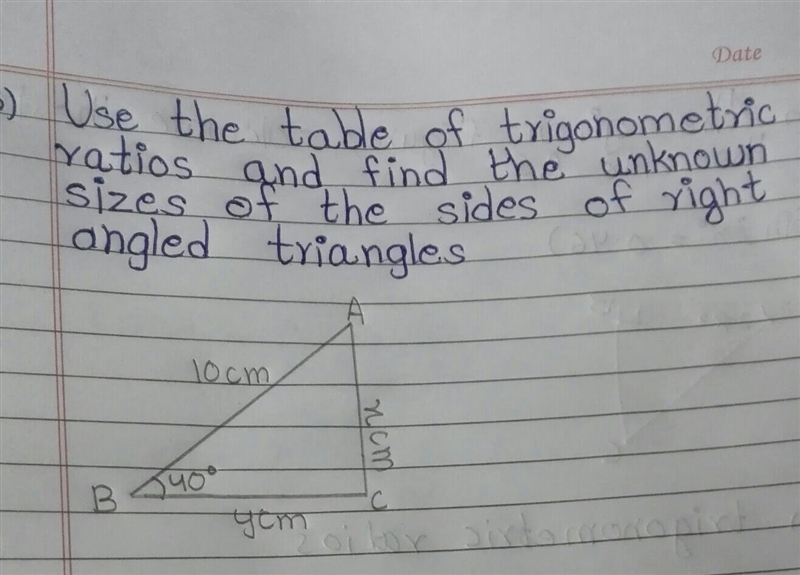 Date
Use the table of trigonometric
ratios and find the unknown
sizes of the sides of right
angled triangles
A
10cm
xcm
40°
B
C
ycm